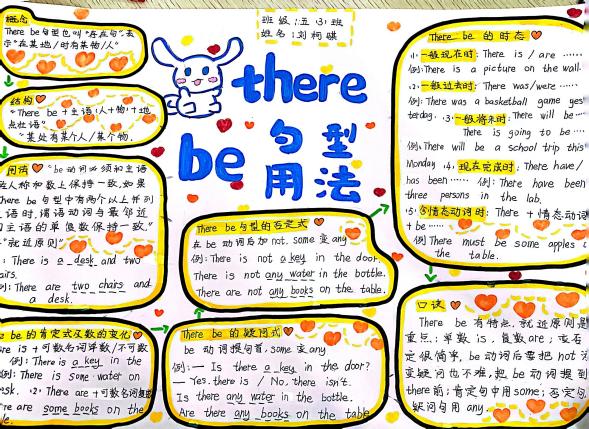 概念
There be句型也叫"存在句"表
示"在某地/时有某物/人"
结构
"There be + 主语(人+物)+地
点状语"
某处有某个人/某个物.
用法 "be动词必须和主语
在人称和数上保持一致,如果
there be 型中有两个以上并列
主语时,谓语动词与最邻近
的主语的单俱数保持一致."
"就近原则"
: There is a desk and two
chairs.
例: There are two chairs and
a desk.
There be 的肯定式及数的变化
There is +可数名词单数/不可数
例: There is a key in the
例: There is some water on
desk. ·2· There are +可数名词复数
There are some books on the
班级:五(3)班
姓名:刘柯骐
there
be 句型
用法
There be句型的否定式
在be动词后加not. some变any
例: There is not a key in the door.
There is not any water in the bottle.
There are not any books on the table.
There be 的疑问式
be 动词提句首, some变any
例:— Is there a key in the door?
— Yes, there is / No, there isn't.
Is there any water in the bottle.
Are there any books on the table
There be 的时态
·1· 一般现在时: There is / are ······
例: There is a picture on the wall.
·2· 一般过去时: There was/were ······
例: There was a basketball game yes
terday. ·3· 一般将来时: There will be ···
There is going to be ···
例: There will be a school trip this
Monday ·4· 现在完成时: There have/
has been ······ 例: There have been
three persons in the lab.
·5· 含情态动词时: There + 情态动词
+ be ······
例: There must be some apples o
the table.
口诀
There be 有特点,就近原则是
重点;单数is,复数are;变否
定很简单, be动词后要把not 添
变疑问也不难,把be动词提到
there前;肯定句中用some;否定句
疑问句用any.